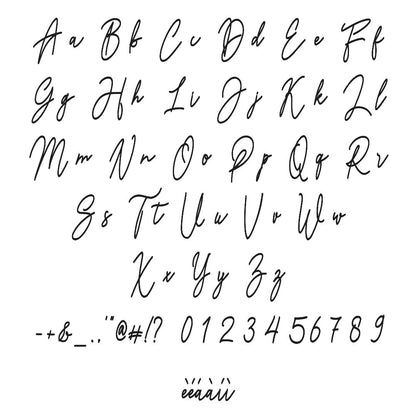 Aa Bb Cc Dd Ee Ff
Gg Hh Ii Jj Kk Ll
Mm Nn Oo Pp Qq Rr
Ss Tt Uu Vv Ww
Xx Yy Zz
-+&_.,'"@#!? 0 1 2 3 4 5 6 7 8 9